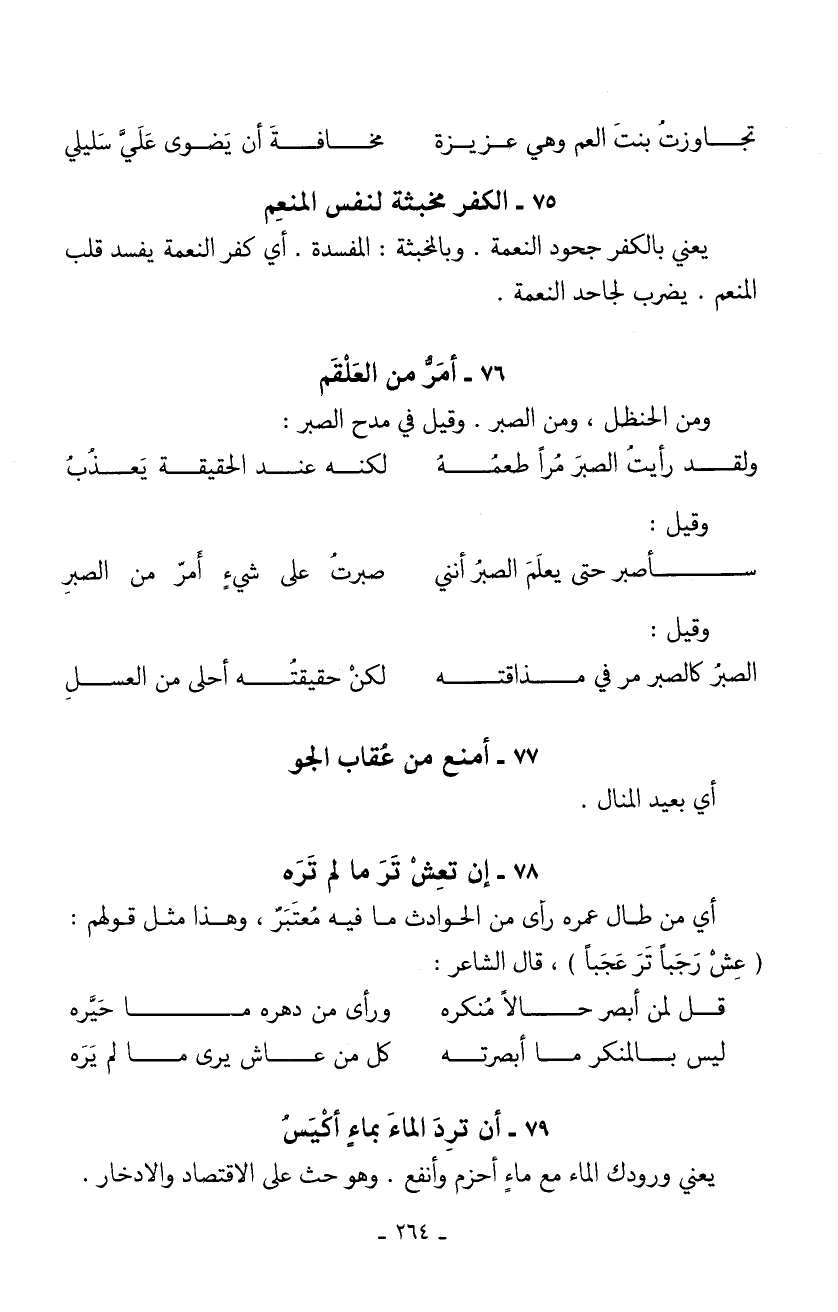 تجاوزتُ بنتَ العم وهي عزيزة مخافةَ أن يَضوى عَلَيَّ سَليلي
٧٥ - الكفر مخبثة لنفس المنعِم
يعني بالكفر جحود النعمة . وبالمخبثة : المفسدة . أي كفر النعمة يفسد قلب
المنعم . يضرب لجاحد النعمة .
٧٦ - أمَرُّ من العَلْقَم
ومن الحنظل ، ومن الصبر . وقيل في مدح الصبر :
ولقد رأيتُ الصبرَ مُراً طعمُهُ لكنه عند الحقيقة يَعذُبُ
وقيل :
سأصبر حتى يعلَمَ الصبرُ أنني صبرتُ على شيءٍ أَمرّ من الصبرِ
وقيل :
الصبرُ كالصبر مر في مذاقته لكنْ حقيقتُه أحلى من العسلِ
٧٧ - أمنع من عُقاب الجو
أي بعيد المنال .
٧٨ - إن تعِشْ تَرَ ما لم تَرَه
أي من طال عمره رأى من الحوادث ما فيه مُعتَبَرٌ ، وهذا مثل قولهم :
( عِشْ رَجَباً تَرَ عَجَباً ) ، قال الشاعر :
قل لمن أبصر حالاً مُنكره ورأى من دهره ما حَيَّره
ليس بالمنكر ما أبصرته كل من عاش يرى ما لم يَرَه
٧٩ - أن ترِدَ الماءَ بماءٍ أكْيَسُ
يعني ورودك الماء مع ماءٍ أحزم وأنفع . وهو حث على الاقتصاد والادخار .
- ٢٦٤ -